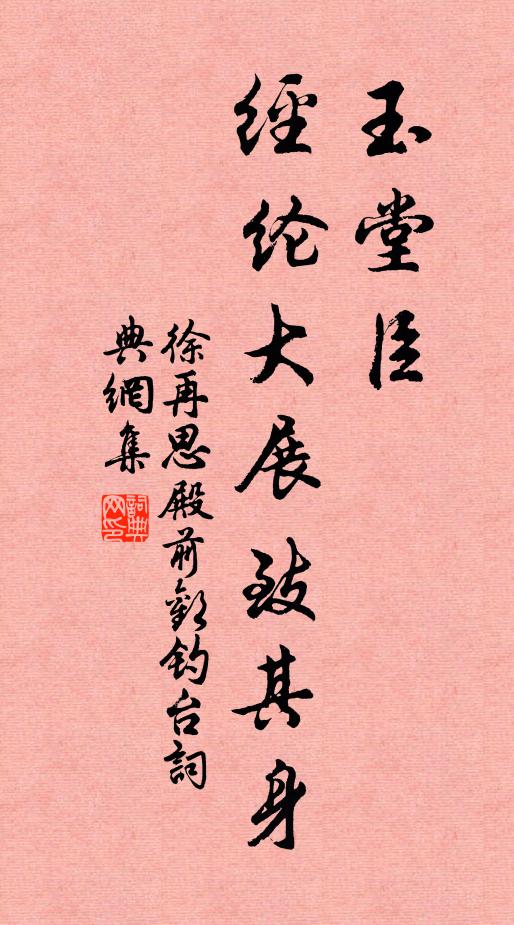 玉堂臣
經纶大展致其身
徐再思殿前歡钓台詞
典網集
詞典
网印